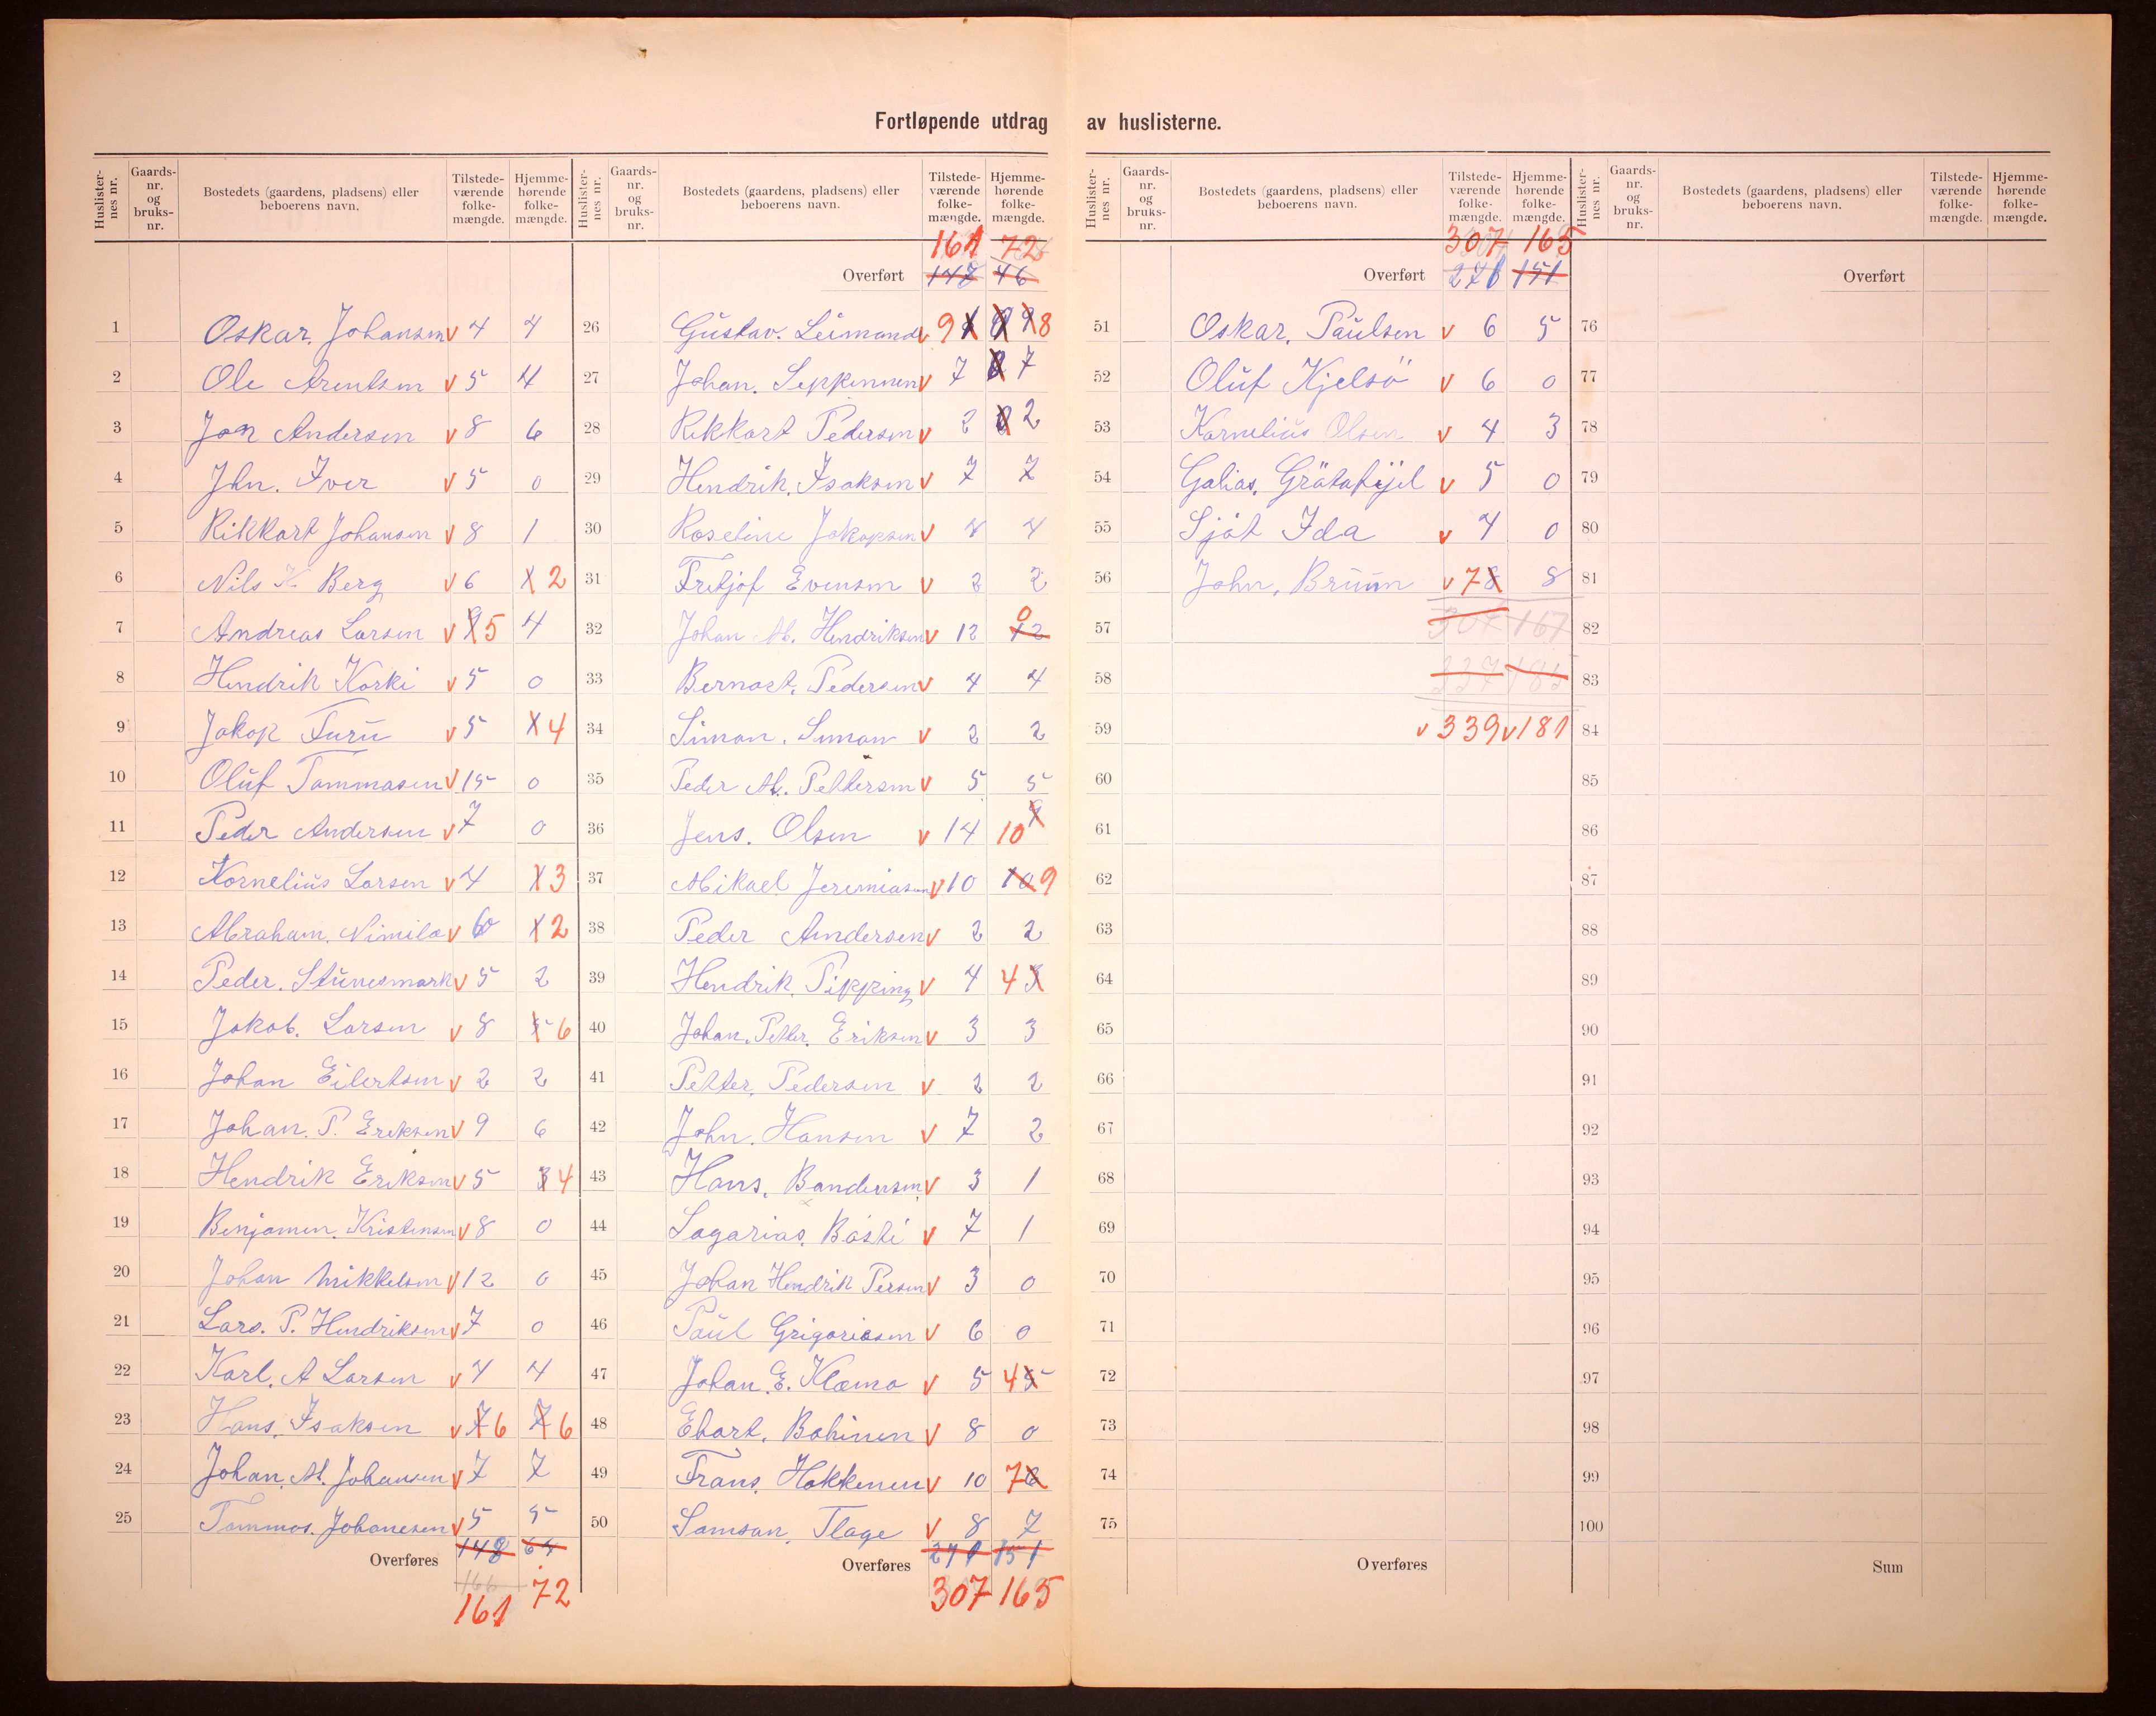 Fortløpende utdrag av huslisterne.
Huslisternes nr. Gaardsnr. og bruksnr. Bostedets (gaardens, pladsens) eller beboerens navn. Tilstedeværende folkemængde. Hjemmehørende folkemængde.
1 Oskar. Johansen v 4 4
2 Ole Arentsen v 5 4
3 Jon Andersen v 8 6
4 Jhn. Iver v 5 0
5 Rikkart Johansen v 8 1
6 Nils K. Berg v 6 2
7 Andreas Larsen v 5 4
8 Hendrik Korki v 5 0
9 Jakop Furu v 5 4
10 Oluf Tammasen v 15 0
11 Peder Andersen v 7 0
12 Kornelius Larsen v 4 3
13 Abraham. Nimila v 6 2
14 Peder. Stunesmark v 5 2
15 Jakob. Larsen v 8 6
16 Johan Eilertsen v 2 2
17 Johan. P. Eriksen v 9 6
18 Hendrik Eriksen v 5 3 4
19 Benjamen. Kristensen v 8 0
20 Johan Mikkelsen v 12 0
21 Lars. P. Hendriksen v 7 0
22 Karl. A Larsen v 4 4
23 Hans. Isaksen v 7 6 7 6
24 Johan. M. Johansen v 7 7
25 Tammos. Johanesen v 5 5
Overføres 148 64
166
161 72
Huslisternes nr. Gaardsnr. og bruksnr. Bostedets (gaardens, pladsens) eller beboerens navn. Tilstedeværende folkemængde. Hjemmehørende folkemængde.
161 72
Overført 147 46
26 Gustav. Leimand v 9 8
27 Johan. Seppennen v 7 7
28 Rikkart Pedersen v 2 2
29 Hendrik. Isaksen v 7 7
30 Roseline Jakopsen v 4 4
31 Fritjof Evensen v 2 2
32 Johan M. Hendriksen v 12 12 0
33 Bernart. Pedersen v 4 4
34 Simon. Simon v 2 2
35 Peder M. Pettersen v 5 5
36 Jens. Olsen v 14 10
37 Mikael Jeremiasen v 10 10 9
38 Peder Andersen v 2 2
39 Hendrik. Pipping v 4 4
40 Johan. Petter. Eriksen v 3 3
41 Petter, Pedersen v 2 2
42 John. Hansen v 7 2
43 Hans. Bandersen v 3 1
44 Sagarias. Båsti v 7 1
45 Johan Hendrik Persen v 3 0
46 Paul Grigoriesen v 6 0
47 Johan. E. Klemo v 5 4 5
48 Ebart. Bahinen v 8 0
49 Frans. Hakkenen v 10 7 6
50 Samsan. Flage v 8 7
Overføres 271 151
307 165
Huslisternes nr. Gaardsnr. og bruksnr. Bostedets (gaardens, pladsens) eller beboerens navn. Tilstedeværende folkemængde. Hjemmehørende folkemængde.
307 165
Overført 271 151
51 Oskar. Paulsen v 6 5
52 Oluf Kjelsö v 6 0
53 Kornelius Olsen v 4 3
54 Galias. v 5 0
55 Sjåt Ida v 4 0
56 John. Bruun v 7 8 8
57 307 167
58 337 185
59 v 339 v 181
60
61
62
63
64
65
66
67
68
69
70
71
72
73
74
75
Overføres
Huslisternes nr. Gaardsnr. og bruksnr. Bostedets (gaardens, pladsens) eller beboerens navn. Tilstedeværende folkemængde. Hjemmehørende folkemængde.
Overført
76
77
78
79
80
81
82
83
84
85
86
87
88
89
90
91
92
93
94
95
96
97
98
99
100
Sum